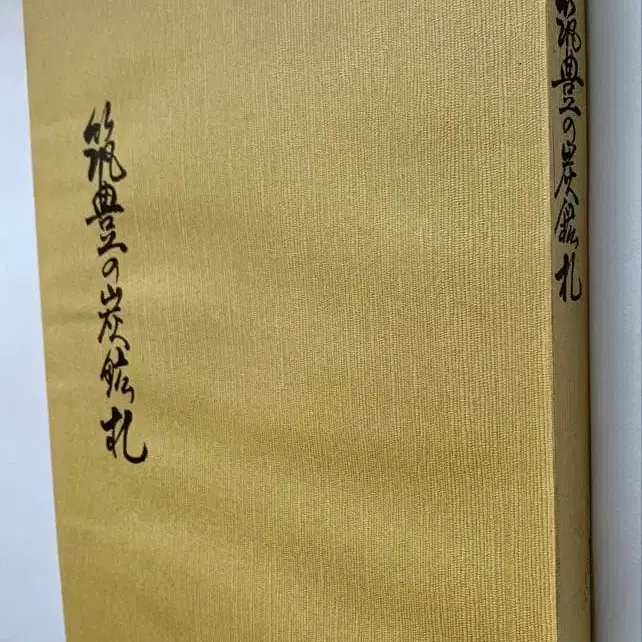 筑豊の炭鉱札
筑豊の炭鉱札